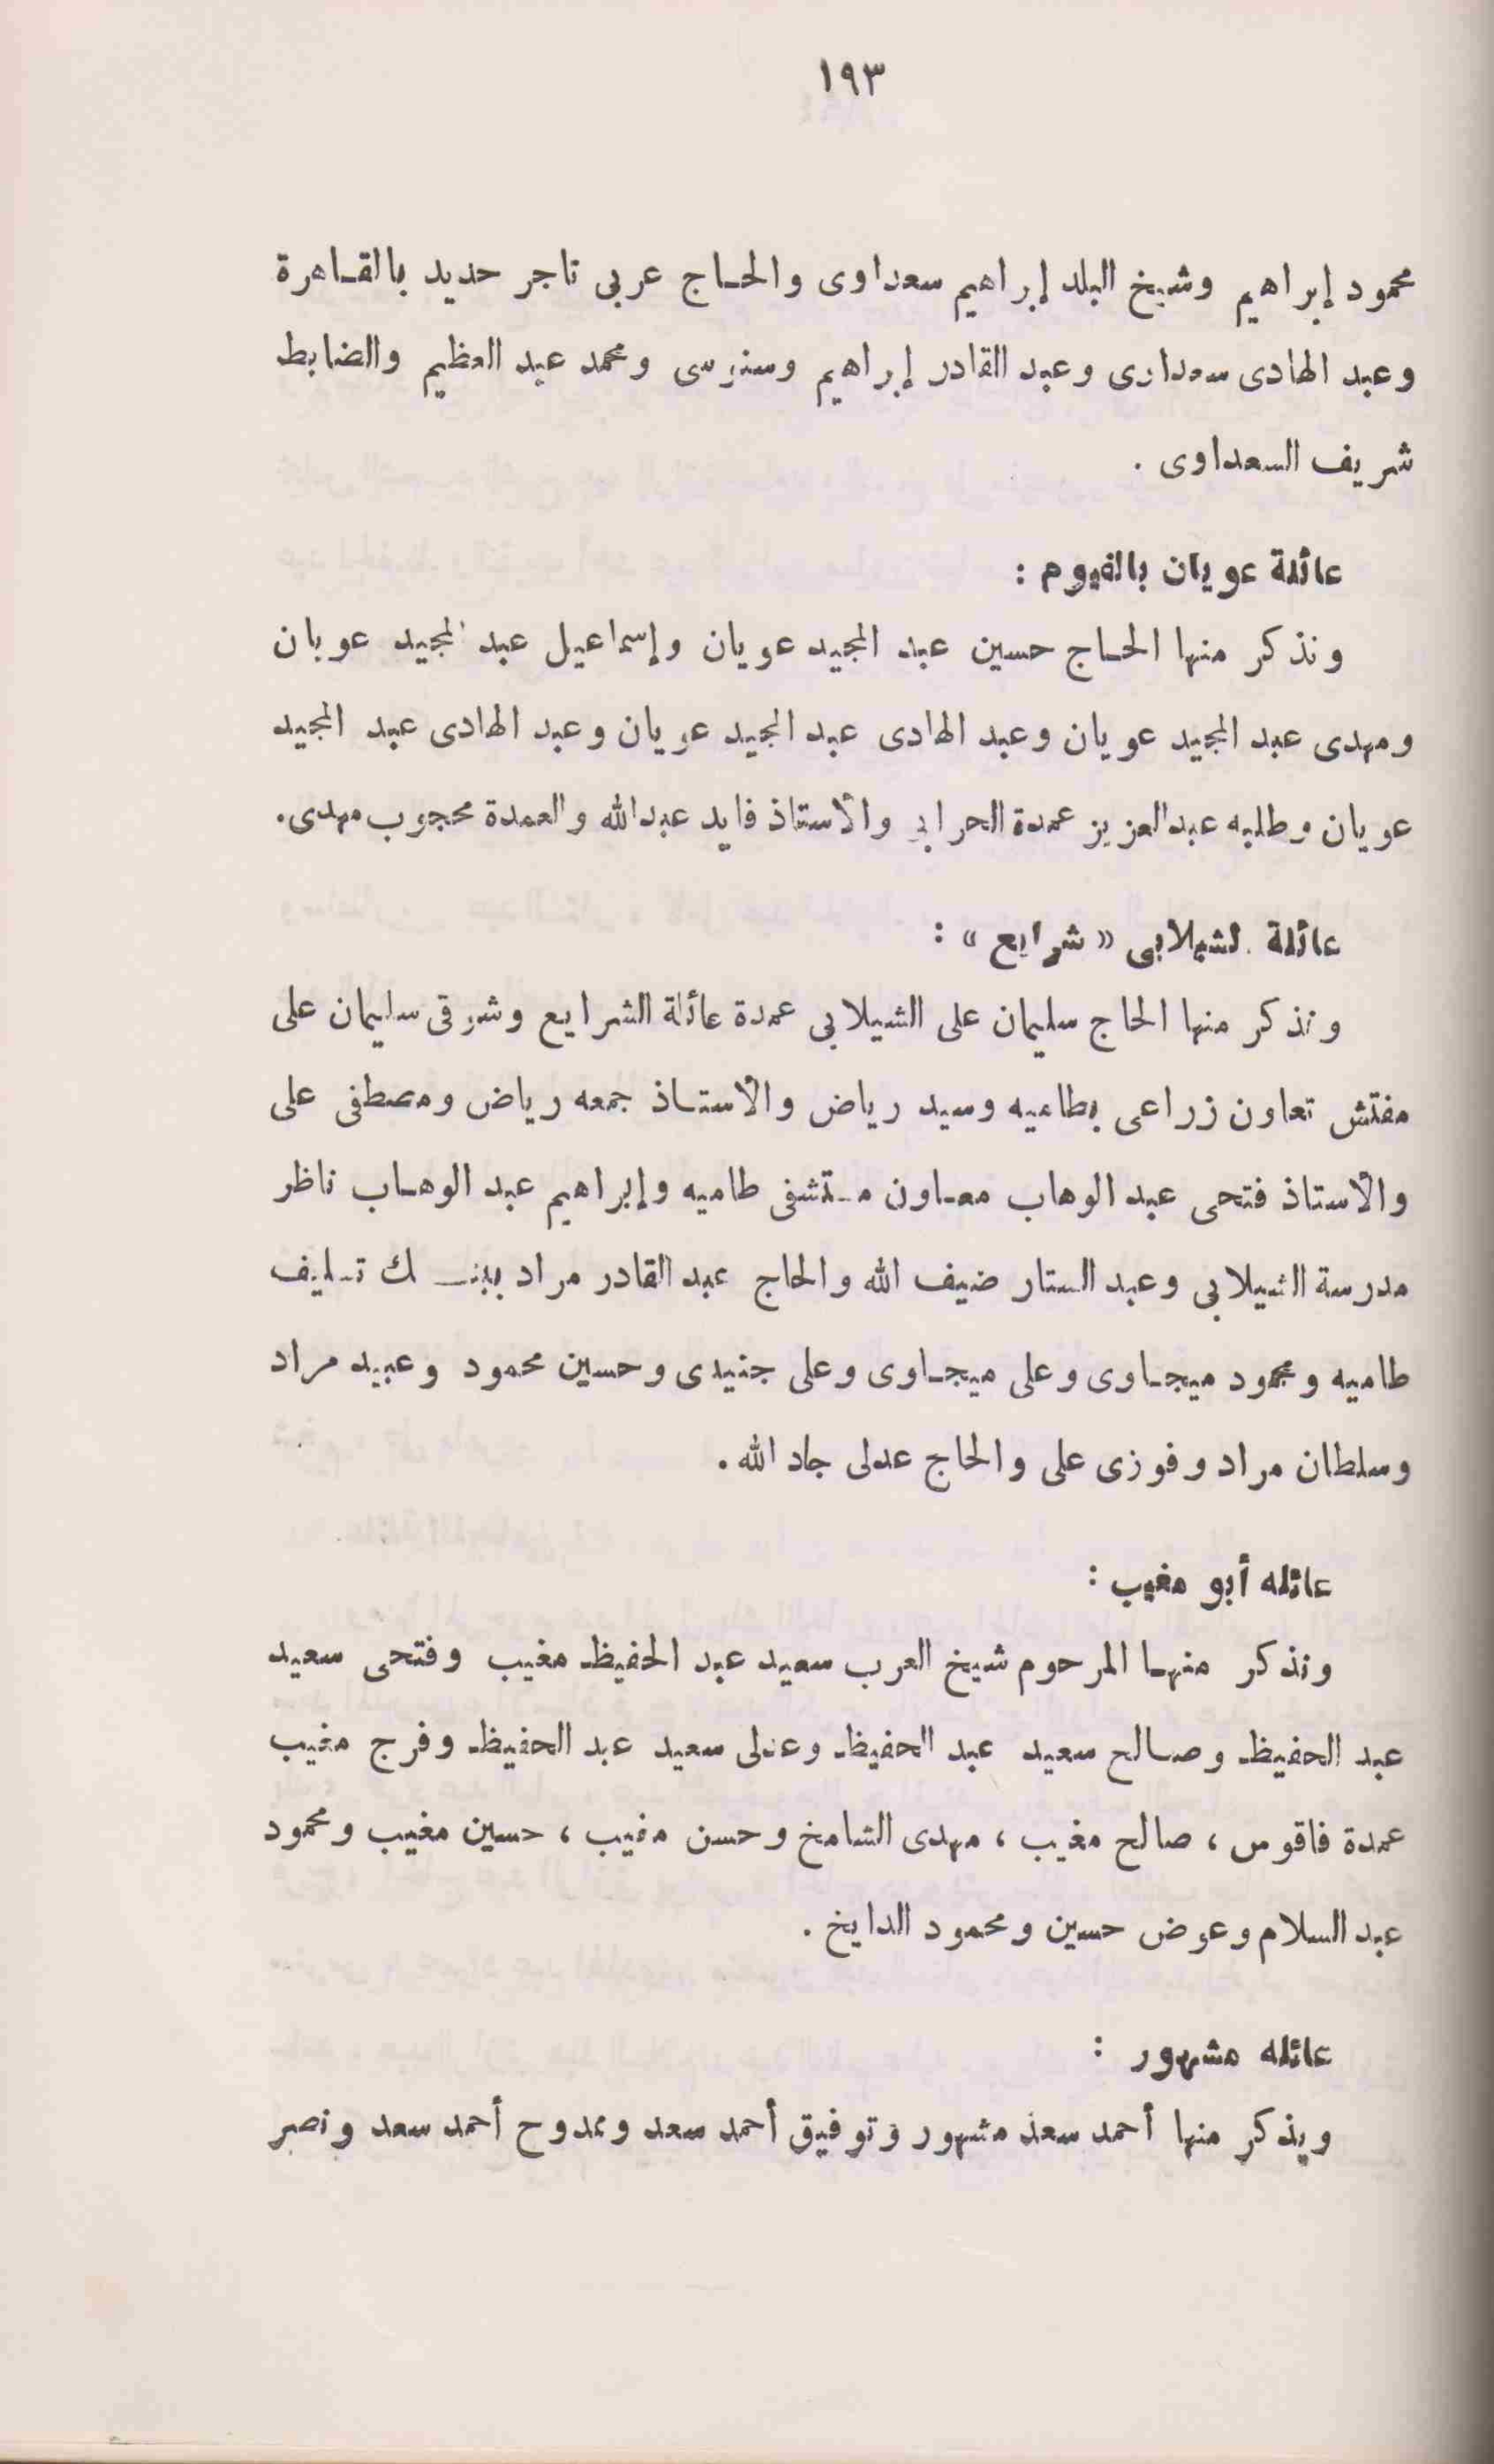 ١٩٣
محمود إبراهيم وشيخ البلد إبراهيم سعداوى والحاج عربى تاجر حديد بالقاهرة
وعبد الهادى سعداوى وعبد القادر إبراهيم وسنوسى ومحمد عبد العظيم والضابط
شريف السعداوى .
عائلة عويان بالفيوم :
ونذكر منها الحاج حسين عبد المجيد عويان وإسماعيل عبد المجيد عويان
ومهدى عبد المجيد عويان وعبد الهادى عبد المجيد عويان وعبد الهادى عبد المجيد
عويان وطلبه عبدالعزيز عمدة الحرابى والأستاذ فايد عبدالله والعمدة محجوب مهدى.
عائلة الشيلابى « شرايع » :
ونذكر منها الحاج سليمان على الشيلابى عمدة عائلة الشرايع وشرقى سليمان على
مفتش تعاون زراعى بطاميه وسيد رياض والأستاذ جمعه رياض ومصطفى على
والأستاذ فتحى عبد الوهاب معاون مستشفى طاميه وإبراهيم عبد الوهاب ناظر
مدرسة الشيلابى وعبد الستار ضيف الله والحاج عبد القادر مراد ببنك تسليف
طاميه ومحمود ميجاوى وعلى ميجاوى وعلى جنيدى وحسين محمود وعبيد مراد
وسلطان مراد وفوزى على والحاج عدلى جاد الله .
عائله أبو مغيب :
ونذكر منها المرحوم شيخ العرب سعيد عبد الحفيظ مغيب وفتحى سعيد
عبد الحفيظ وصالح سعيد عبد الحفيظ وعدلى سعيد عبد الحفيظ وفرج مغيب
عمدة فاقوس ، صالح مغيب ، مهدى الشامخ وحسن مغيب ، حسين مغيب ومحمود
عبد السلام وعوض حسين ومحمود الدايخ .
عائله مشهور :
ويذكر منها أحمد سعد مشهور وتوفيق أحمد سعد وممدوح أحمد سعد ونصر